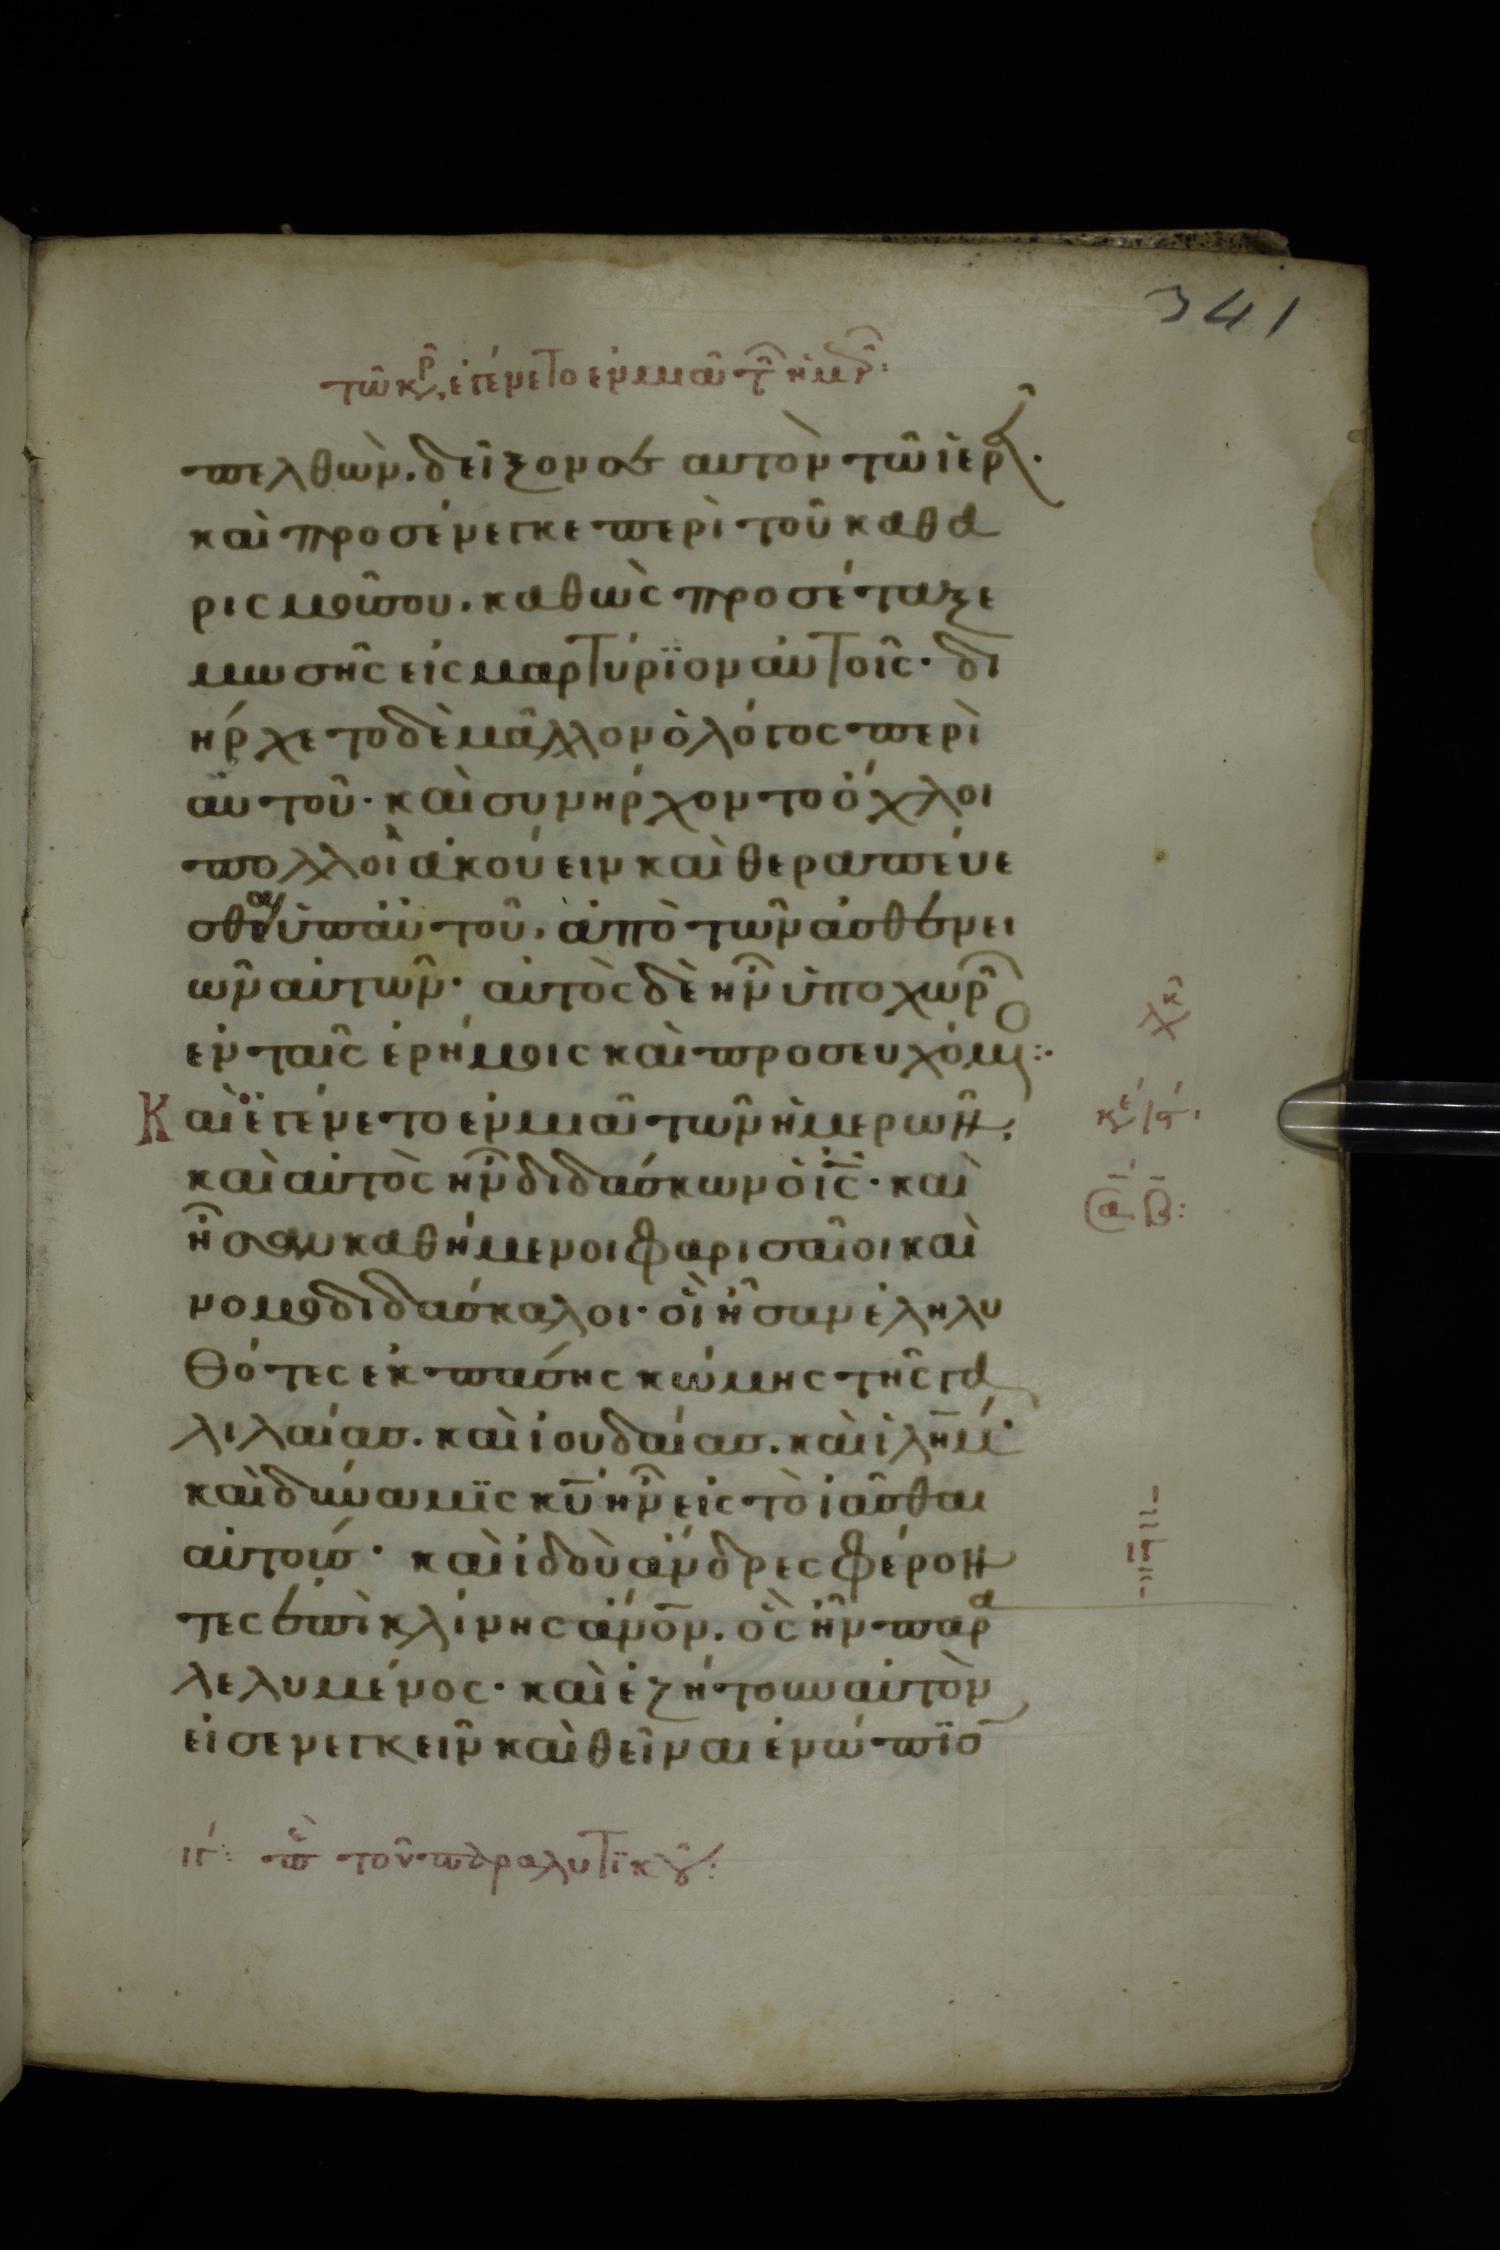 341
τῶ κρ, ἐγένετο ἐν μιᾶ τ ἡμρ:
πελθὼν. δεῖξον σεαυτὸν τῶ ἱερ.
καὶ προσένεγκε περὶ τοῦ καθα
ρισμοῦ σου. καθὼς προσέταξε
μωσῆς εἰς μαρτύριον αὐτοῖς· δι
ήρχετο δὲ μᾶλλον ὁ λόγος περὶ
αὐτοῦ· καὶ συνήρχοντο ὄχλοι
πολλοὶ ἀκούειν καὶ θεραπεύε
σθαι ὑπ αὐτοῦ. ἀπὸ τῶν ἀσθενει
ῶν αὐτῶν· αὐτὸς δὲ ἦν ὑποχωρ
ἐν ταῖς ἐρήμοις καὶ προσευχόμ:
Καὶ ἐγένετο ἐν μιᾶ τῶν ἡμερῶν:
καὶ αὐτὸς ἦν διδάσκων ὁ ι̅ς̅· καὶ
ἦσαν καθήμενοι φαρισαῖοι καὶ
νομοδιδάσκαλοι· οἳ ἦσαν ἐληλυ
θότες ἐκ πάσης κώμης τῆς γα
λιλαίας. καὶ ἰουδαίας. καὶ ἰλη̅μ·
καὶ δύναμις κ̅υ̅ ἦν εἰς τὸ ἰᾶσθαι
αὐτούς· καὶ ἰδοὺ ἄνδρες φέρον
τες ἐπὶ κλίνης ἀν̅ο̅ν. ὃς ἦν παρα
λελυμένος· καὶ ἐζήτουν αὐτὸν
εἰσενεγκεῖν καὶ θεῖναι ἐνώπιο
ιγ: πε τοῦ παραλυτικοῦ: